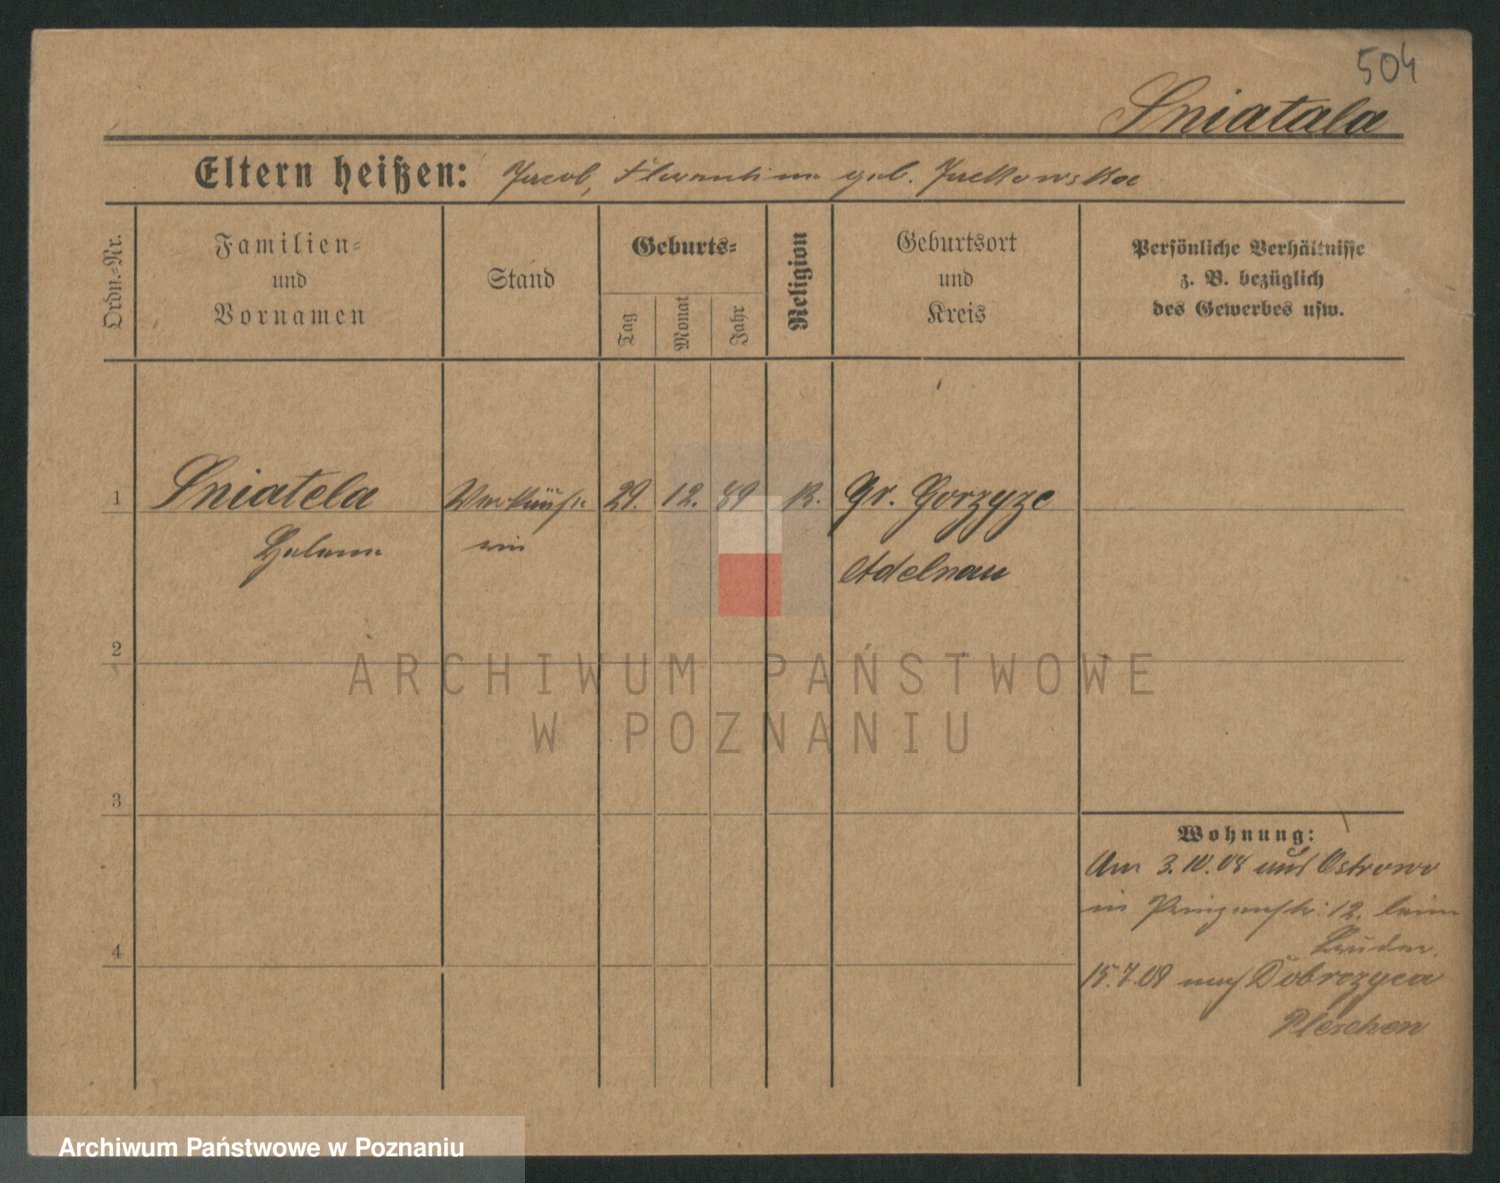 504
Sniatala
Eltern heißen: Jacob, Florentina geb. Jackowska
Ordn.-Nr.
Familien-
und
Vornamen
Stand
Geburts-
Tag
Monat
Jahr
Religion
Geburtsort
und
Kreis
Persönliche Verhältnisse
z. B. bezüglich
des Gewerbes usw.
1 Sniatela Verkäufe 29. 12. 89 K. Gr. Gorzyze
Helene rin Adelnau
2
ARCHIWUM PAŃSTWOWE
W POZNANIU
3
Wohnung:
Am 3.10.08 aus Ostrowo
in Prinzenstr. 12. beim
4
15.7.09 nach Dobrozyca
Pleschen
Archiwum Państwowe w Poznaniu